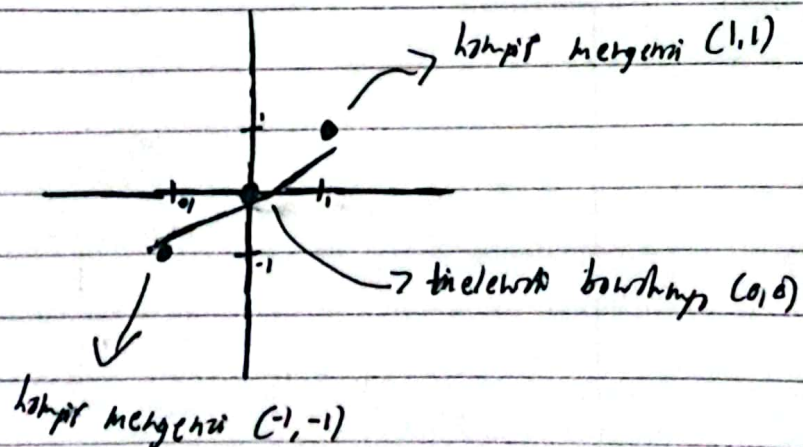 hampir mengenai (1,1)
1
-1
1
-1
bawahnya (0,0)
hampir mengenai (-1,-1)